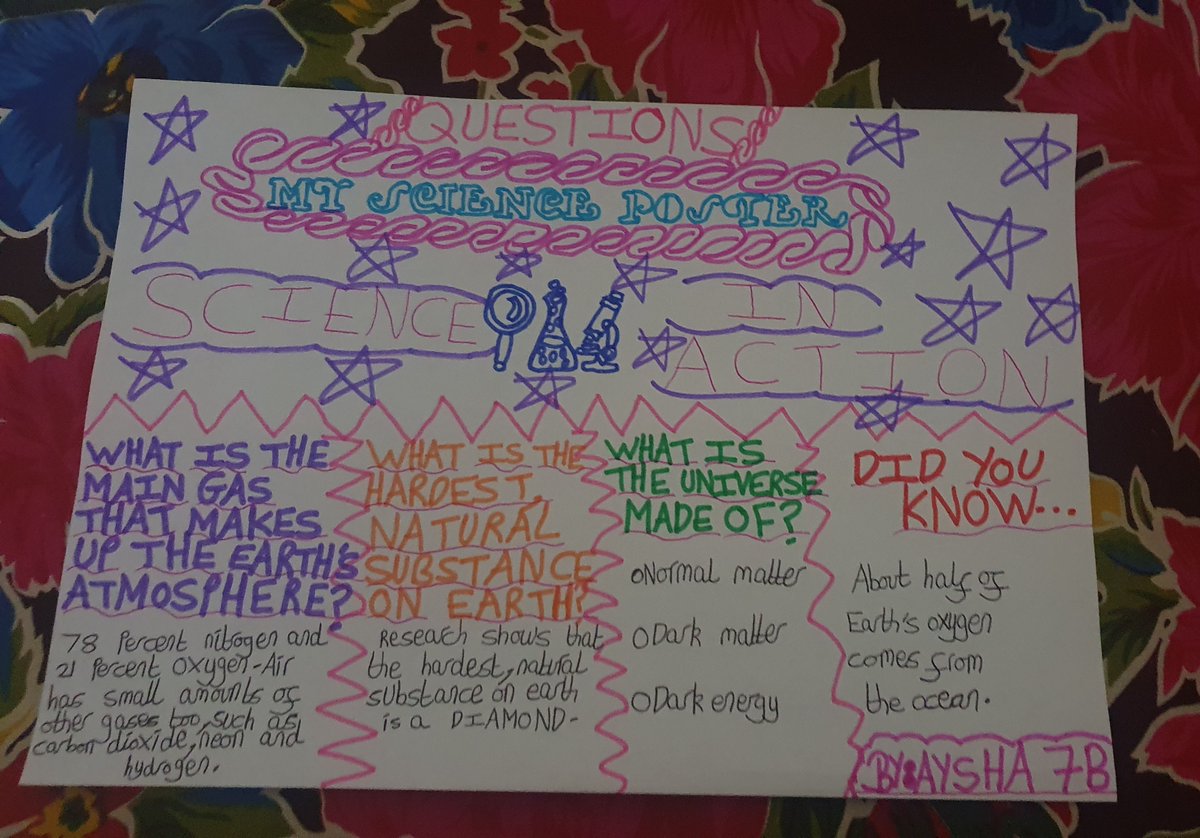 QUESTIONS
MY SCIENCE POSTER
SCIENCE IN
ACTION
WHAT IS THE
MAIN GAS
THAT MAKES
UP THE EARTH'S
ATMOSPHERE?
78 Percent nitrogen and
21 Percent oxygen-Air
has small amounts of
other gases too, such as
carbon dioxide, neon and
hydrogen.
WHAT IS THE
HARDEST,
NATURAL
SUBSTANCE
ON EARTH?
Reseach shows that
the hardest, natural
substance on earth
is a DIAMOND-
WHAT IS
THE UNIVERSE
MADE OF?
Normal matter
Dark matter
Dark energy
DID YOU
KNOW...
About half of
Earth's oxygen
comes from
the ocean.
BY:AYSHA 7B